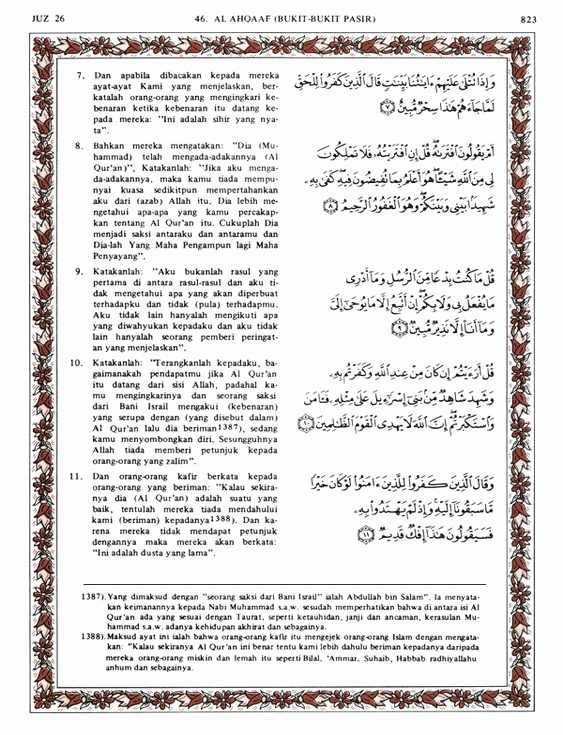 JUZ 26
46. AL AHQAAF (BUKIT-BUKIT PASIR)
823
7. Dan apabila dibacakan kepada mereka
ayat-ayat Kami yang menjelaskan, ber-
katalah orang-orang yang mengingkari ke-
benaran ketika kebenaran itu datang ke-
pada mereka: "Ini adalah sihir yang nya-
ta".
وَإِذَا تُتْلَىٰ عَلَيْهِمْ ءَايَٰتُنَا بَيِّنَٰتٍ قَالَ ٱلَّذِينَ كَفَرُوا۟ لِلْحَقِّ
لَمَّا جَآءَهُمْ هَٰذَا سِحْرٌ مُّبِينٌ ﴿٧﴾
8. Bahkan mereka mengatakan: "Dia (Mu-
hammad) telah mengada-adakannya (Al
Qur'an)", Katakanlah: "Jika aku menga-
da-adakannya, maka kamu tiada mempu-
nyai kuasa sedikitpun mempertahankan
aku dari (azab) Allah itu, Dia lebih me-
ngetahui apa-apa yang kamu percakap-
kan tentang Al Qur'an itu. Cukuplah Dia
menjadi saksi antaraku dan antaramu dan
Dia-lah Yang Maha Pengampun lagi Maha
Penyayang".
أَمْ يَقُولُونَ ٱفْتَرَىٰهُ قُلْ إِنِ ٱفْتَرَيْتُهُۥ فَلَا تَمْلِكُونَ
لِى مِنَ ٱللَّهِ شَيْـًٔا هُوَ أَعْلَمُ بِمَا تُفِيضُونَ فِيهِ كَفَىٰ بِهِۦ
شَهِيدًۢا بَيْنِى وَبَيْنَكُمْ وَهُوَ ٱلْغَفُورُ ٱلرَّحِيمُ ﴿٨﴾
9. Katakanlah: "Aku bukanlah rasul yang
pertama di antara rasul-rasul dan aku ti-
dak mengetahui apa yang akan diperbuat
terhadapku dan tidak (pula) terhadapmu.
Aku tidak lain hanyalah mengikuti apa
yang diwahyukan kepadaku dan aku tidak
lain hanyalah seorang pemberi peringat-
an yang menjelaskan".
قُلْ مَا كُنتُ بِدْعًا مِّنَ ٱلرُّسُلِ وَمَآ أَدْرِى
مَا يُفْعَلُ بِى وَلَا بِكُمْ إِنْ أَتَّبِعُ إِلَّا مَا يُوحَىٰٓ إِلَىَّ
وَمَآ أَنَا۠ إِلَّا نَذِيرٌ مُّبِينٌ ﴿٩﴾
10. Katakanlah: "Terangkanlah kepadaku, ba-
gaimanakah pendapatmu jika Al Qur'an
itu datang dari sisi Allah, padahal ka-
mu mengingkarinya dan seorang saksi
dari Bani Israil mengakui (kebenaran)
yang serupa dengan (yang disebut dalam)
Al Qur'an lalu dia beriman1387), sedang
kamu menyombongkan diri. Sesungguhnya
Allah tiada memberi petunjuk kepada
orang-orang yang zalim".
قُلْ أَرَءَيْتُمْ إِن كَانَ مِنْ عِندِ ٱللَّهِ وَكَفَرْتُم بِهِۦ
وَشَهِدَ شَاهِدٌ مِّنۢ بَنِىٓ إِسْرَٰٓءِيلَ عَلَىٰ مِثْلِهِۦ فَـَٔامَنَ
وَٱسْتَكْبَرْتُمْ إِنَّ ٱللَّهَ لَا يَهْدِى ٱلْقَوْمَ ٱلظَّٰلِمِينَ ﴿١٠﴾
11. Dan orang-orang kafir berkata kepada
orang-orang yang beriman: "Kalau sekira-
nya dia (Al Qur'an) adalah suatu yang
baik, tentulah mereka tiada mendahului
kami (beriman) kepadanya1388). Dan ka-
rena mereka tidak mendapat petunjuk
dengannya maka mereka akan berkata:
"Ini adalah dusta yang lama".
وَقَالَ ٱلَّذِينَ كَفَرُوا۟ لِلَّذِينَ ءَامَنُوا۟ لَوْ كَانَ خَيْرًا
مَّا سَبَقُونَآ إِلَيْهِ وَإِذْ لَمْ يَهْتَدُوا۟ بِهِۦ
فَسَيَقُولُونَ هَٰذَآ إِفْكٌ قَدِيمٌ ﴿١١﴾
1387). Yang dimaksud dengan "seorang saksi dari Bani Israil" ialah Abdullah bin Salam". Ia menyata-
kan keimanannya kepada Nabi Muhammad s.a.w. sesudah memperhatikan bahwa di antara isi Al
Qur'an ada yang sesuai dengan Taurat, seperti ketauhidan, janji dan ancaman, kerasulan Mu-
hammad s.a.w. adanya kehidupan akhirat dan sebagainya.
1388). Maksud ayat ini ialah bahwa orang-orang kafir itu mengejek orang-orang Islam dengan mengata-
kan: "Kalau sekiranya Al Qur'an ini benar tentu kami lebih dahulu beriman kepadanya daripada
mereka orang-orang miskin dan lemah itu seperti Bilal, 'Ammar, Suhaib, Habbab radhiyallahu
anhum dan sebagainya.